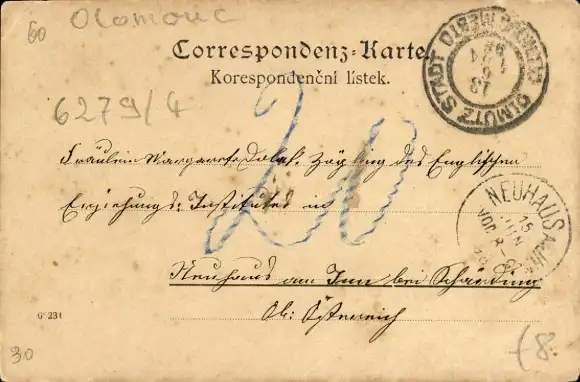 60 Olomouc
Correspondenz-Karte.
Korespondenční lístek.
OLMÜTZ STADT OLOMOUC MĚSTO
13
6
6279/4
20
Fräulein Margarete Zögling des Englischen
Erziehungs-Institutes in
NEUHAUS A. INN
15
JUN
VOR
Neuhaus am Inn bei Schärding
Ob: Österreich
G 231
30